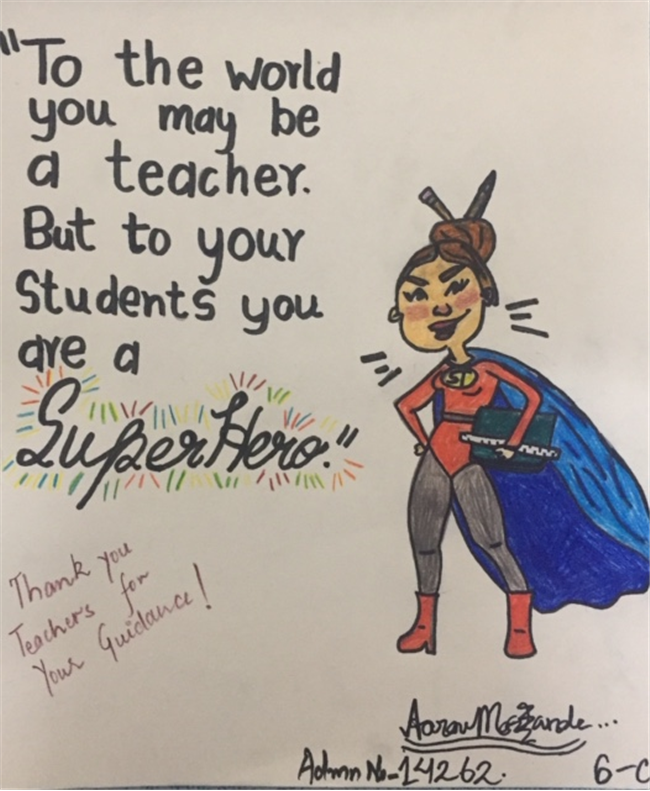 "To the world
you may be
a teacher.
But to your
Students you
are a
SuperHero."
ST
Thank you
Teachers for
Your Guidance!
Aarav
Admn No-14262.
6-C